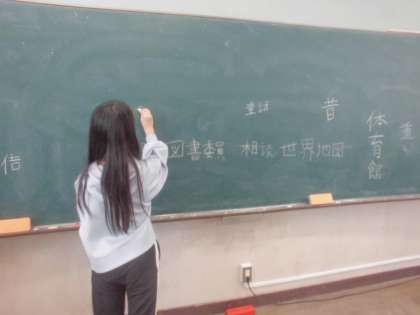 倍
図書委員
相談
世界地図
童話
昔
体育館
重い